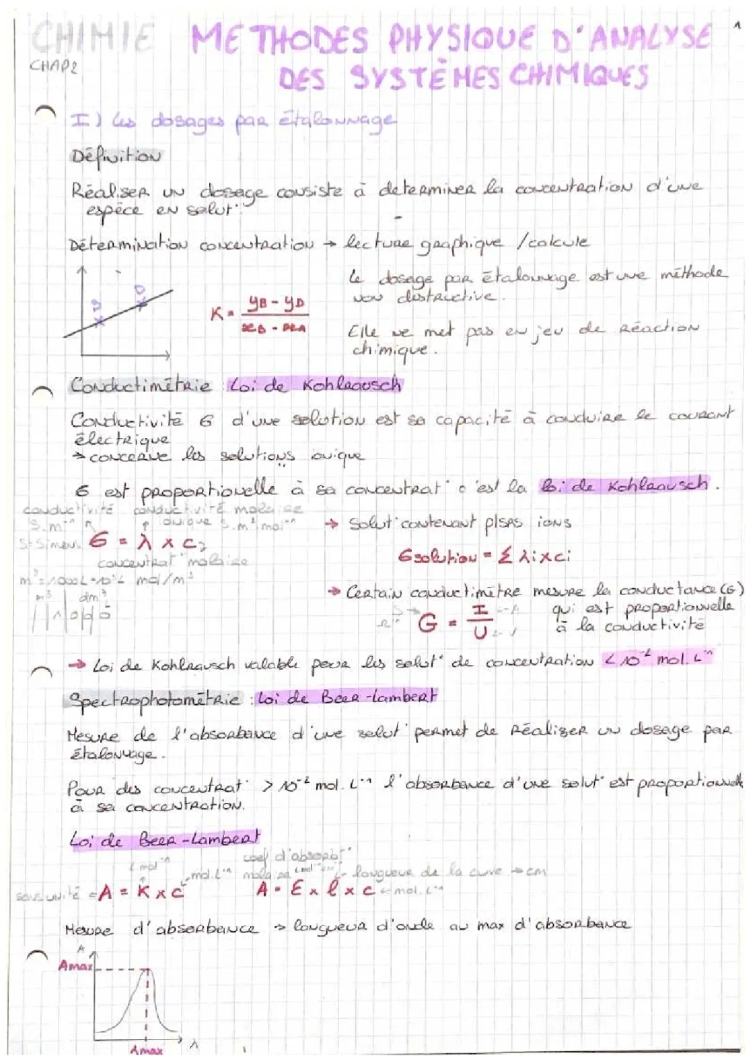 1
CHIMIE METHODES PHYSIQUE D'ANALYSE
CHAP2
DES SYSTÈMES CHIMIQUES
I) Les dosages par étalonnage
Définition
Réaliser un dosage consiste à determiner la concentration d'une
espèce en solut°.
Détermination concentration → lecture graphique / calcule
Le dosage par étalonnage est une méthode
non destructive.
K = yB - yD
Elle ne met pas en jeu de réaction
chimique.
Conductimétrie : Loi de Kohlraousch
Conductivité σ d'une solution est sa capacité à conduire le courant
électrique
→ concerne les solutions ionique
σ est proportionelle à sa concentrat° c'est la loi de Kohlrausch.
conductivité conductivité molaire
S.m⁻¹ ionique S.m².mol⁻¹
→ Solut° contenant plsrs ions
σ = λ × c
σ solution = Σ λi × ci
concentrat° molaire
mol/m³
→ Certain conductimètre mesure la conductance (G)
m³ dm³
qui est proportionnelle
G = I/U
à la conductivité
→ Loi de Kohlrausch valable pour les solut° de concentration < 10⁻² mol.L⁻¹
Spectrophotométrie : Loi de Beer-Lambert
Mesure de l'absorbance d'une solut° permet de réaliser un dosage par
étalonnage.
Pour des concentrat° > 10⁻² mol.L⁻¹ l'absorbance d'une solut° est proportionnelle
à sa concentration.
Loi de Beer-Lambert
coef d'absorpt°
L.mol⁻¹ mol.L⁻¹ molaire longueur de la cuve → cm
sans unité ← A = K × c A = E × l × c ← mol.L⁻¹
Mesure d'absorbance → longueur d'onde au max d'absorbance
A
Amax
λmax λ